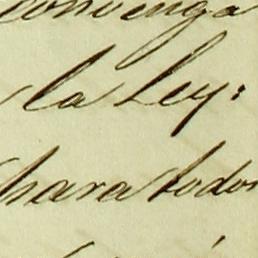 convenga
la Ley:
para todos